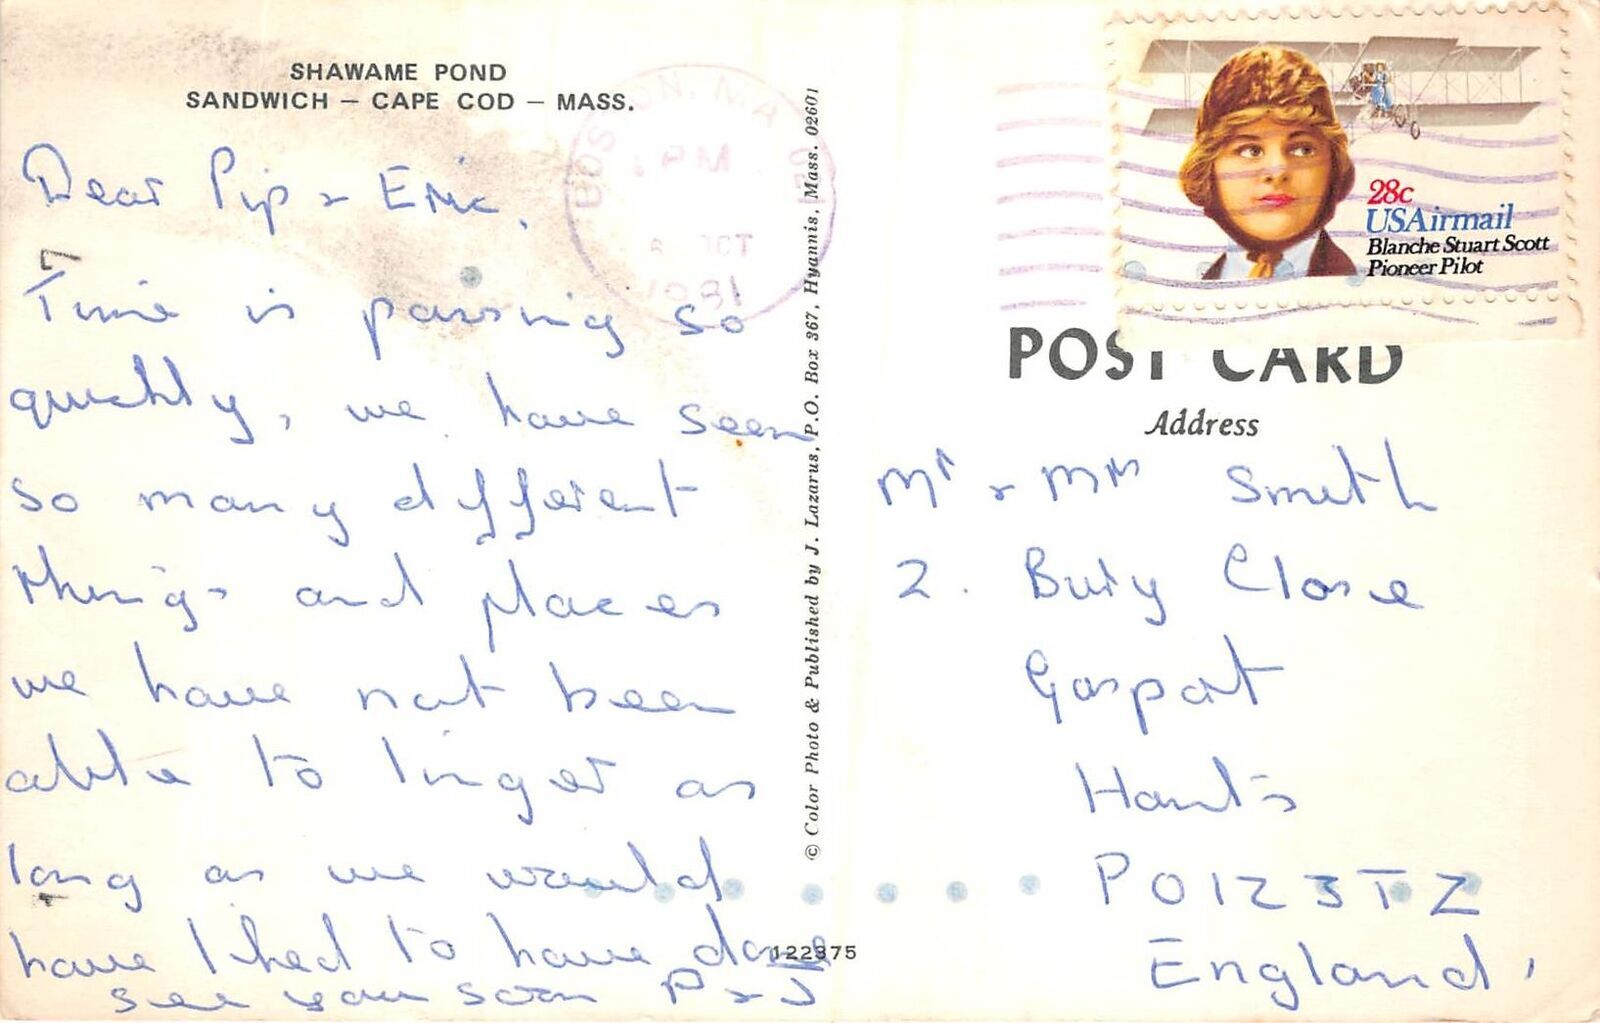 SHAWAME POND
SANDWICH – CAPE COD – MASS.
Dear Pip & Eric.
Time is passing so
quickly, we have seen
so many different
things and places
we have not been
able to linger as
long as we would
have liked to have done
see you soon P & J
122375
© Color Photo & Published by J. Lazarus, P.O. Box 367, Hyannis, Mass. 02601
BOSTON, MA
PM
OCT
1981
28c
USAirmail
Blanche Stuart Scott
Pioneer Pilot
POST CARD
Address
Mr & Mrs Smith
2. Bury Close
Gosport
Hants
PO12 3TZ
England.